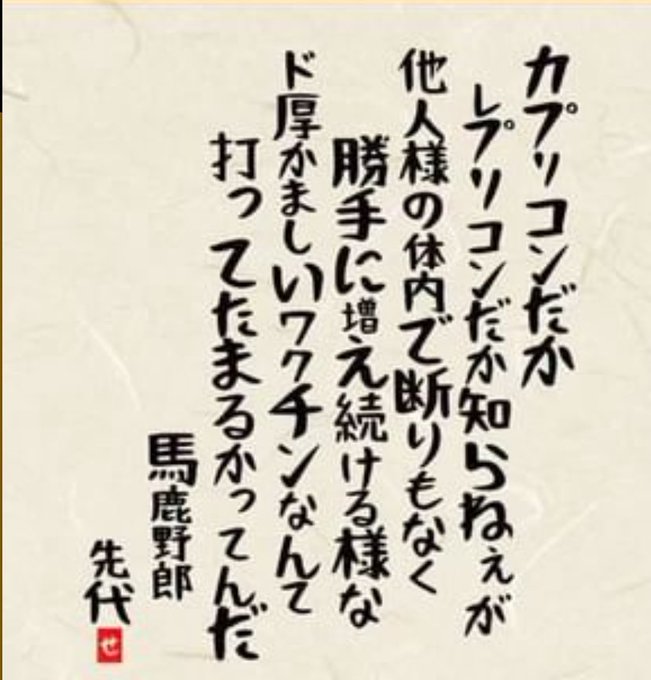 カプリコンだか
レプリコンだか知らねぇが
他人様の体内で断りもなく
勝手に増え続ける様な
ド厚かましいワクチンなんて
打ってたまるかってんだ
馬鹿野郎
先代
せ